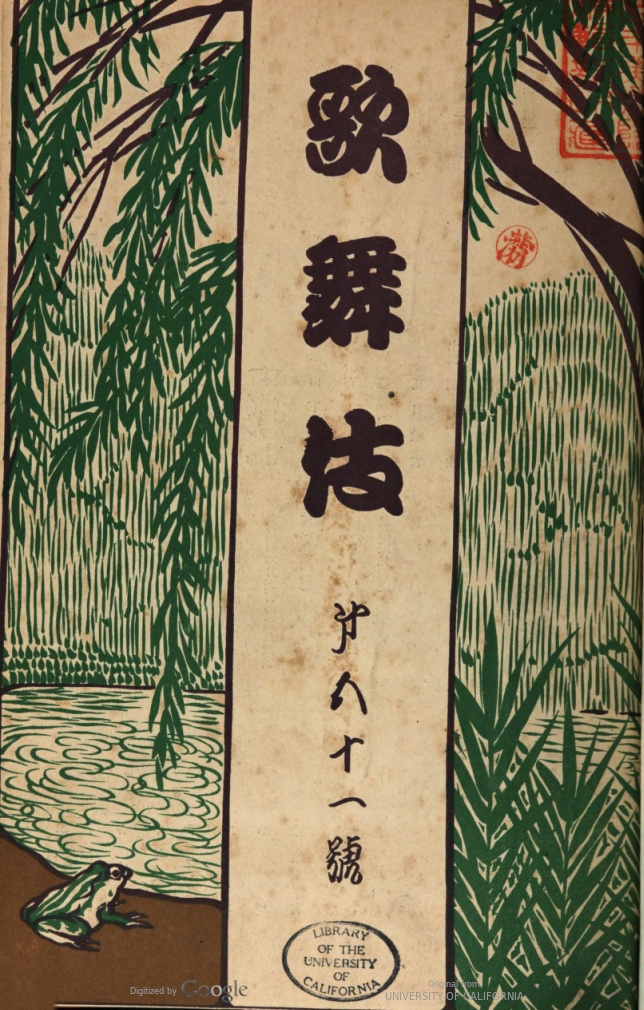 歌舞伎
第八十一號
LIBRARY
OF THE
UNIVERSITY
OF
CALIFORNIA
Digitized by Google
Original from
UNIVERSITY OF CALIFORNIA